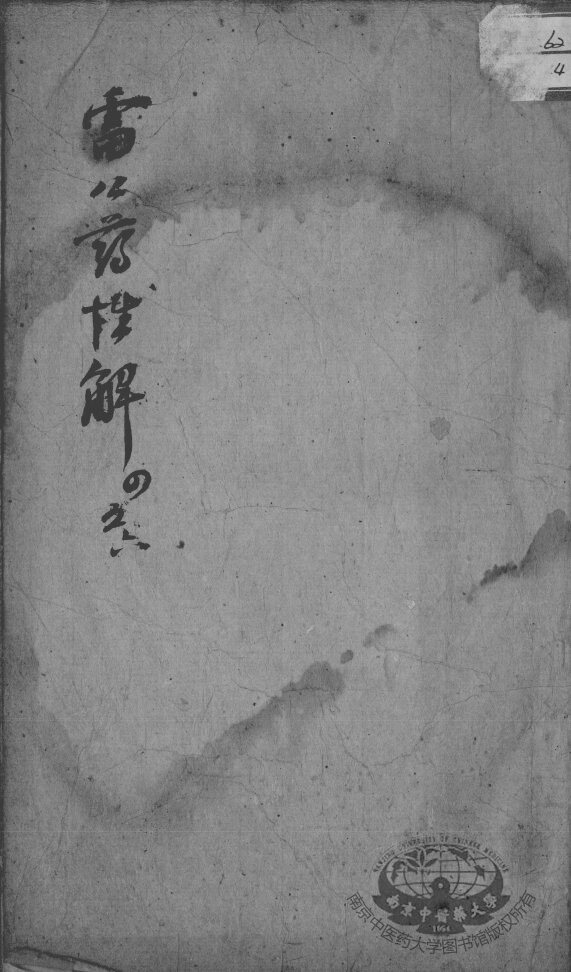 雷公药性解
四五六
60
4
NANJING UNIVERSITY OF CHINESE MEDICINE
南京中醫藥大学
1954
南京中医药大学图书馆版权所有